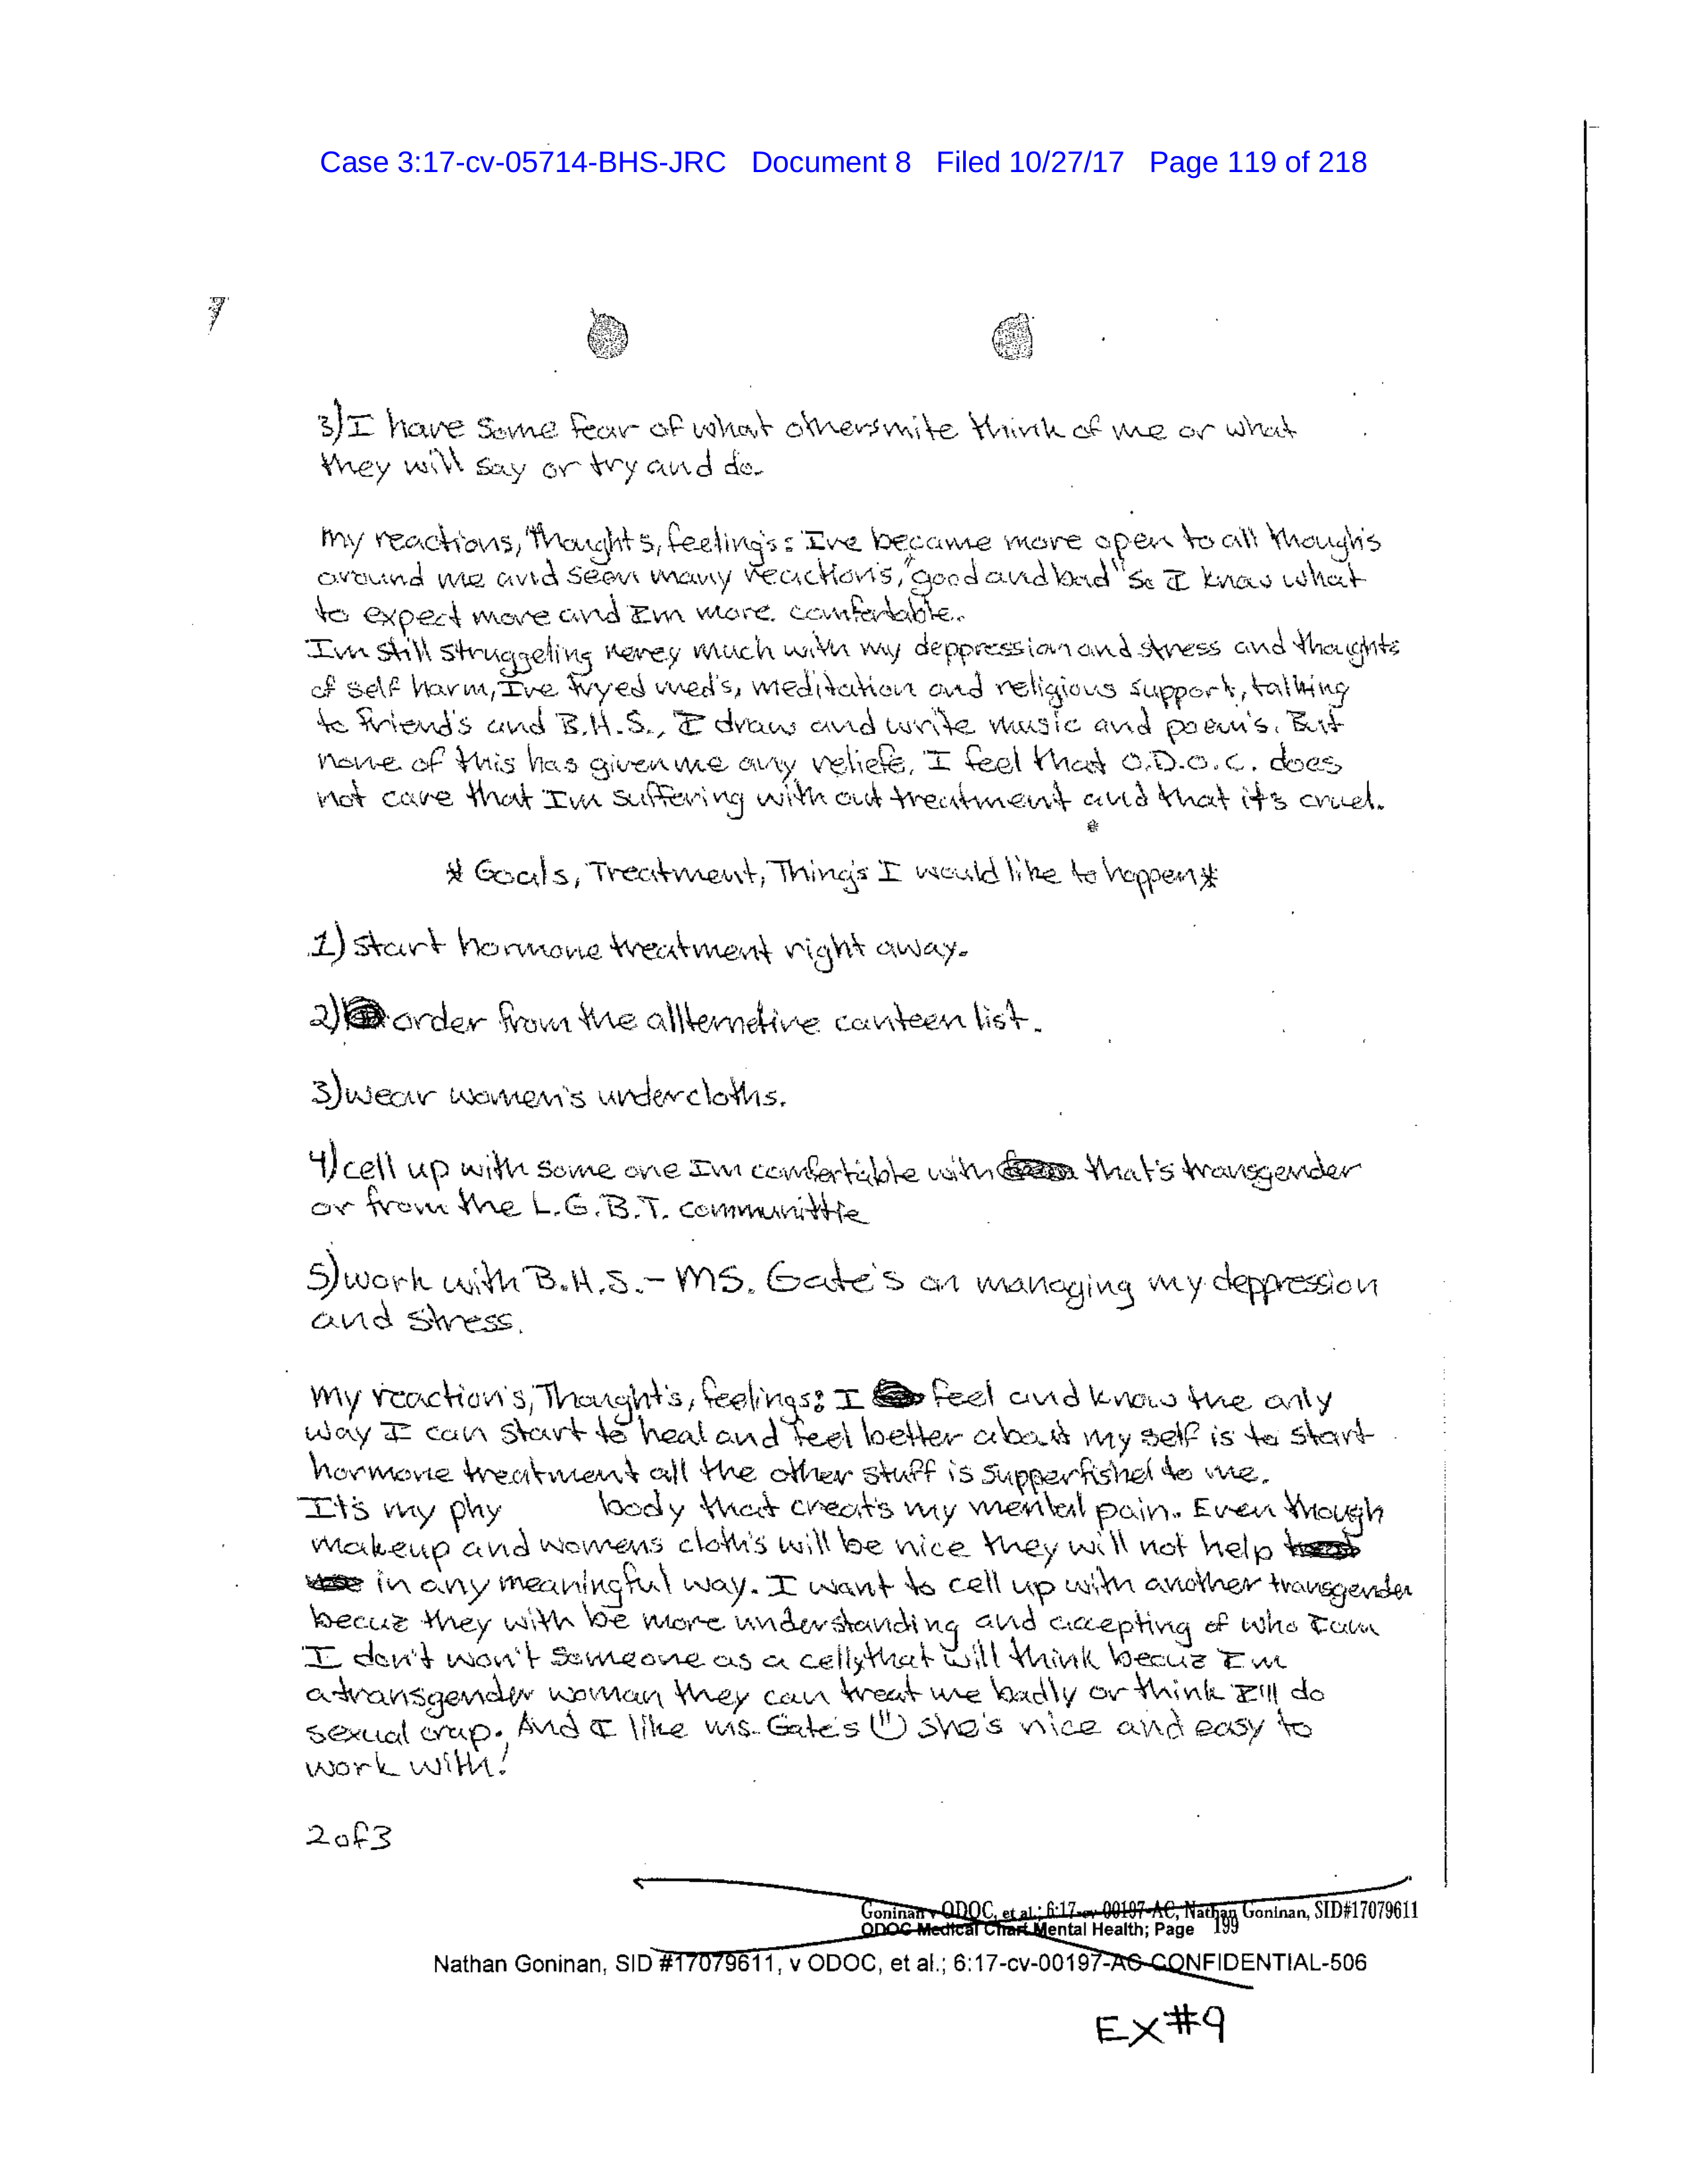 Case 3:17-cv-05714-BHS-JRC Document 8 Filed 10/27/17 Page 119 of 218
3) I have some fear of what others mite think of me or what
they will say or try and do.
my reactions, Thought's, feeling's: Ive became more open to all though's
around me and seen many reaction's, "good and bad" so I know what
to expect more and Im more comfertable.
Im still struggeling verey much with my deppression and stress and thoughts
of self harm, Ive tryed med's, meditation and religious support, talking
to friend's and B.H.S., I draw and write music and poem's. But
none of this has given me any reliefe. I feel that O.D.O.C. does
not care that Im suffering with out treatment and that it's cruel.
* Goals, Treatment, Thing's I would like to happen *
1) start hormone treatment right away.
2) order from the allternetive canteen list.
3) wear women's undercloths.
4) cell up with some one Im comfertable with that's transgender
or from the L.G.B.T. communittie
5) work with B.H.S. - MS. Gate's on managing my deppression
and stress.
my reaction's, Thought's, feelings: I feel and know the only
way I can start to heal and feel better about my self is to start
hormone treatment all the other stuff is supperfishel to me.
It's my phy body that creat's my mental pain. Even though
makeup and womens cloth's will be nice they will not help
in any meaningful way. I want to cell up with another transgender
becuz they with be more understanding and accepting of who I am
I don't won't someone as a celly that will think becuz Im
a transgender woman they can treat me badly or think I'll do
sexual crap. And I like ms. Gate's she's nice and easy to
work with!
2 of 3
Goninan v ODOC, et al.; 6:17-cv-00197-AC, Nathan Goninan, SID#17079611
ODOC Medical Chart Mental Health; Page 199
Nathan Goninan, SID #17079611, v ODOC, et al.; 6:17-cv-00197-AC CONFIDENTIAL-506
EX#9